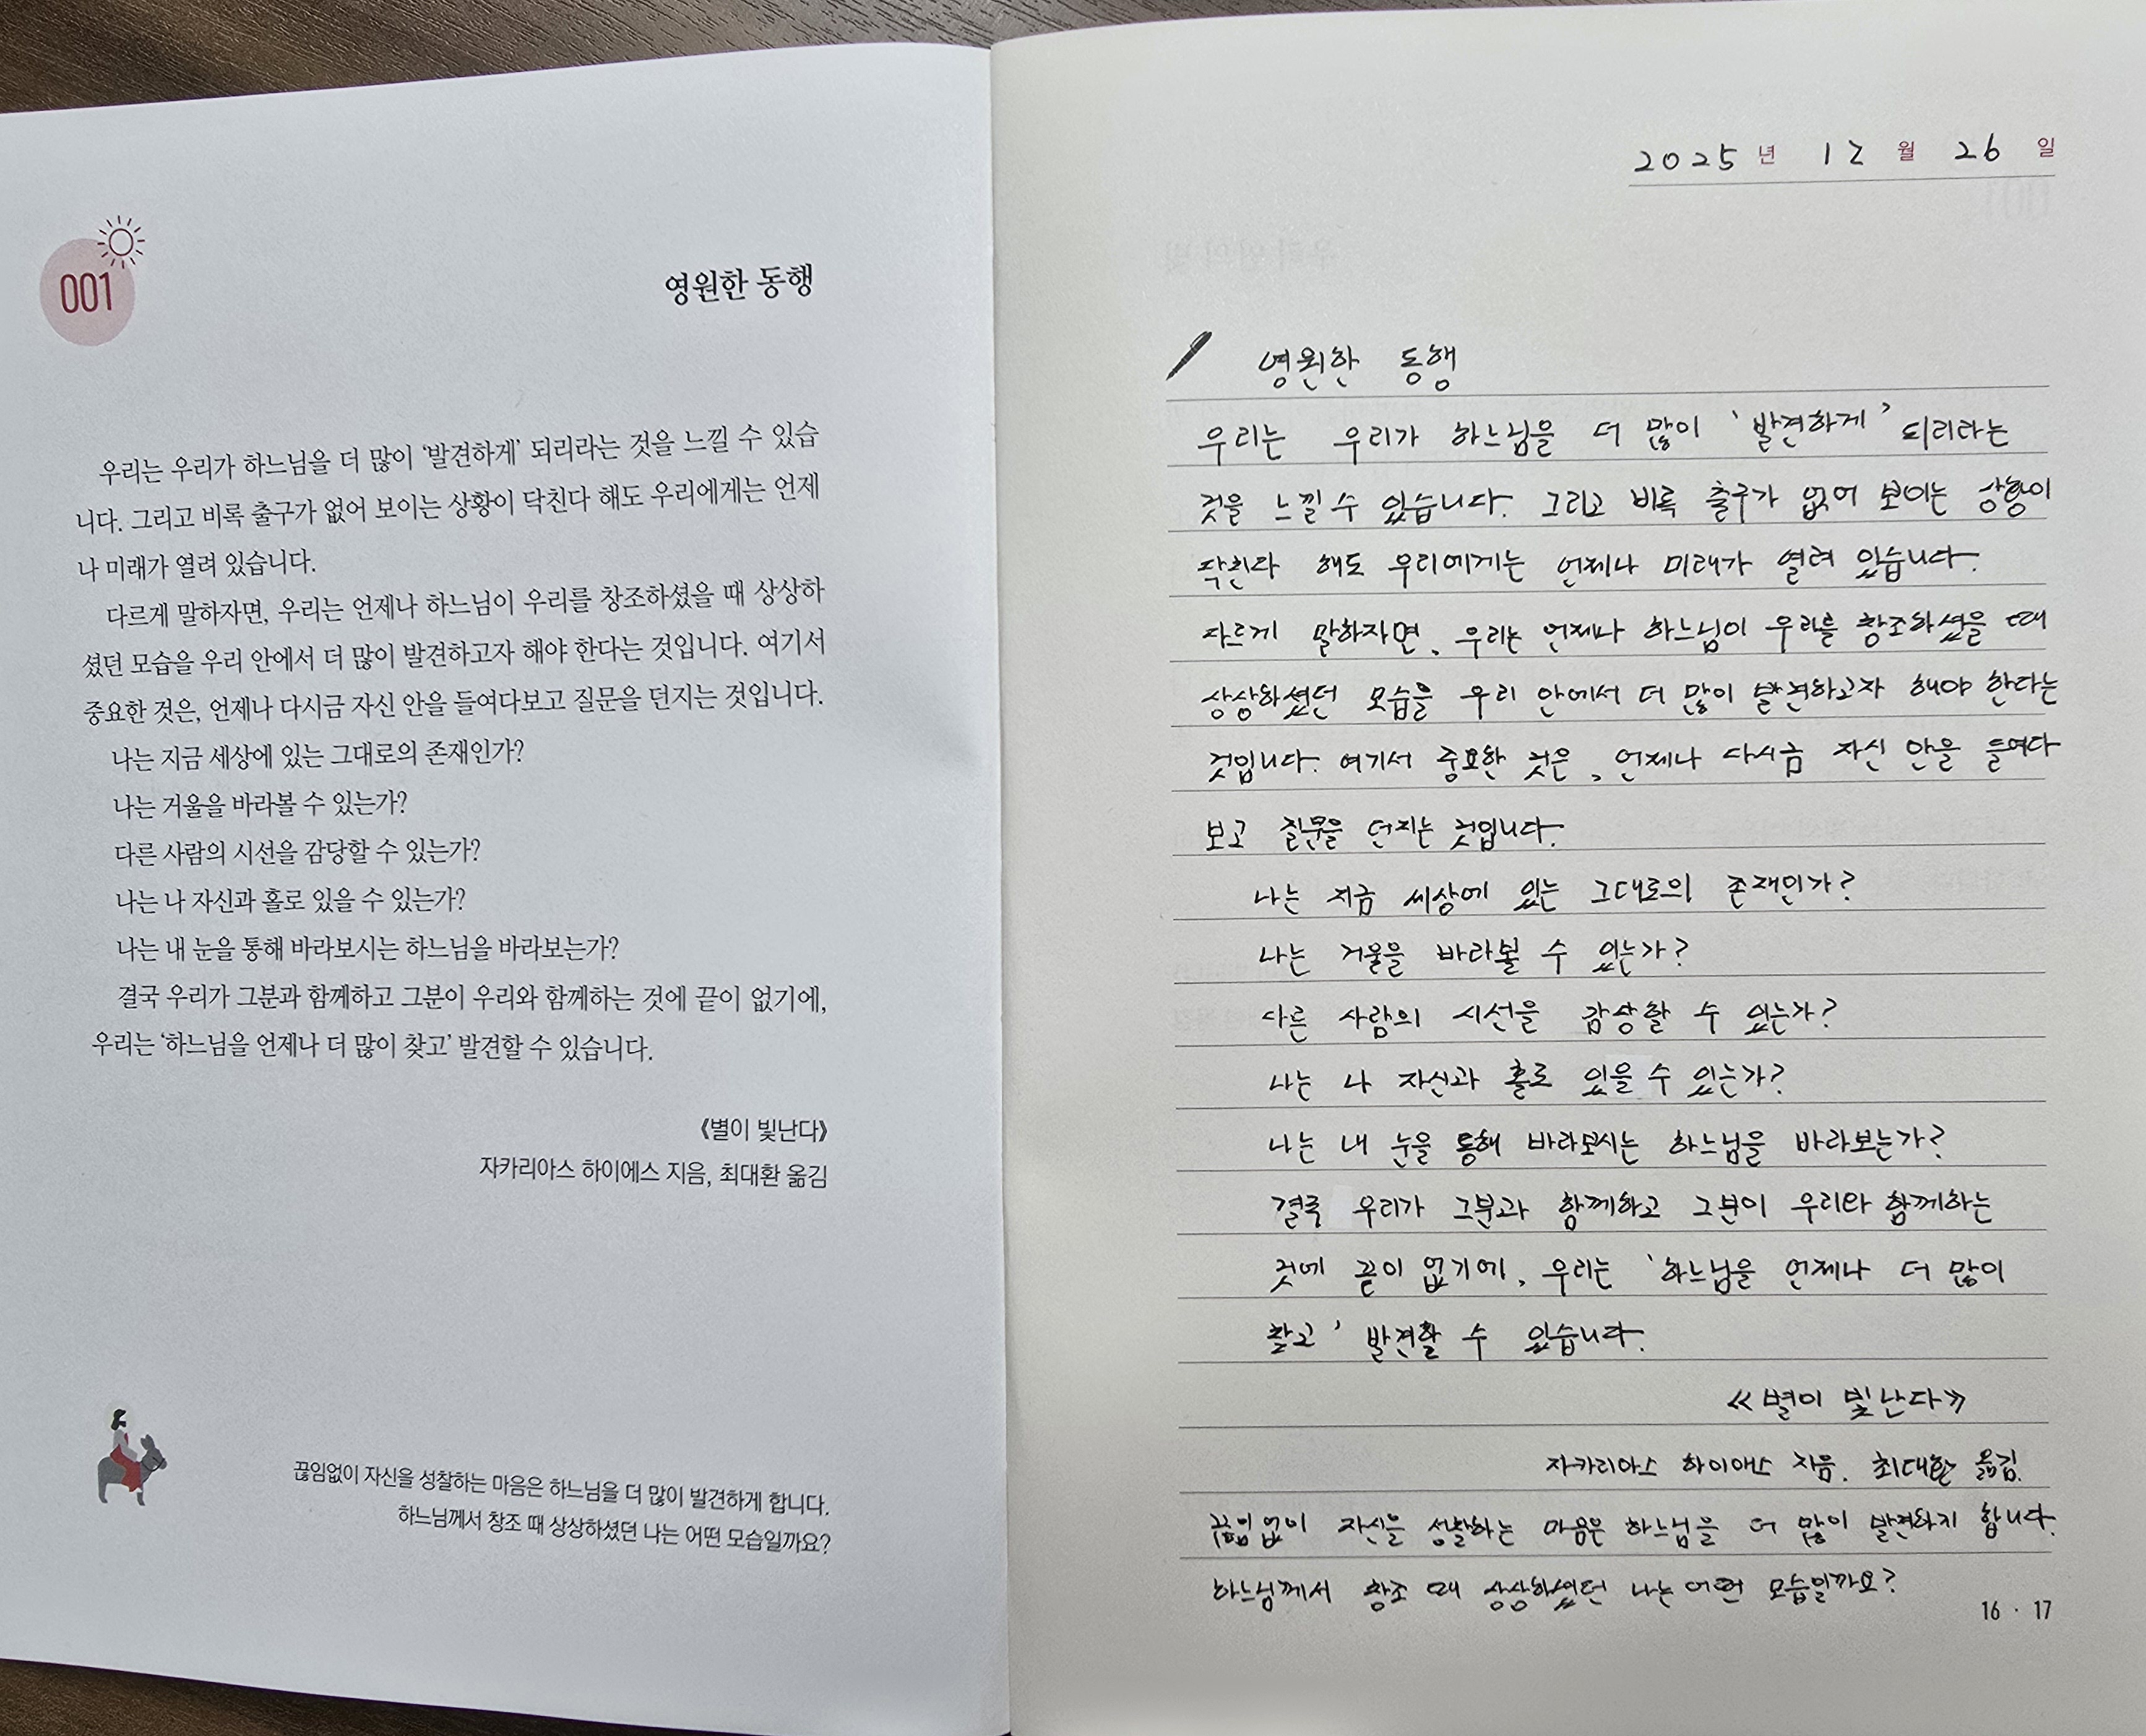 001
영원한 동행
우리는 우리가 하느님을 더 많이 ‘발견하게’ 되리라는 것을 느낄 수 있습
니다. 그리고 비록 출구가 없어 보이는 상황이 닥친다 해도 우리에게는 언제
나 미래가 열려 있습니다.
다르게 말하자면, 우리는 언제나 하느님이 우리를 창조하셨을 때 상상하
셨던 모습을 우리 안에서 더 많이 발견하고자 해야 한다는 것입니다. 여기서
중요한 것은, 언제나 다시금 자신 안을 들여다보고 질문을 던지는 것입니다.
나는 지금 세상에 있는 그대로의 존재인가?
나는 거울을 바라볼 수 있는가?
다른 사람의 시선을 감당할 수 있는가?
나는 나 자신과 홀로 있을 수 있는가?
나는 내 눈을 통해 바라보시는 하느님을 바라보는가?
결국 우리가 그분과 함께하고 그분이 우리와 함께하는 것에 끝이 없기에,
우리는 ‘하느님을 언제나 더 많이 찾고’ 발견할 수 있습니다.
《별이 빛난다》
자카리아스 하이에스 지음, 최대환 옮김
끊임없이 자신을 성찰하는 마음은 하느님을 더 많이 발견하게 합니다.
하느님께서 창조 때 상상하셨던 나는 어떤 모습일까요?
2025년 12월 26일
영원한 동행
우리는 우리가 하느님을 더 많이 ‘발견하게’ 되리라는
것을 느낄 수 있습니다. 그리고 비록 출구가 없어 보이는 상황이
닥친다 해도 우리에게는 언제나 미래가 열려 있습니다.
다르게 말하자면, 우리는 언제나 하느님이 우리를 창조하셨을 때
상상하셨던 모습을 우리 안에서 더 많이 발견하고자 해야 한다는
것입니다. 여기서 중요한 것은, 언제나 다시금 자신 안을 들여다
보고 질문을 던지는 것입니다.
나는 지금 세상에 있는 그대로의 존재인가?
나는 거울을 바라볼 수 있는가?
다른 사람의 시선을 감상할 수 있는가?
나는 나 자신과 홀로 있을 수 있는가?
나는 내 눈을 통해 바라보시는 하느님을 바라보는가?
결국 우리가 그분과 함께하고 그분이 우리와 함께하는
것에 끝이 없기에, 우리는 ‘하느님을 언제나 더 많이
찾고’ 발견할 수 있습니다.
《별이 빛난다》
자카리아스 하이에스 지음. 최대환 옮김.
끊임없이 자신을 성찰하는 마음은 하느님을 더 많이 발견하지 합니다.
하느님께서 창조 때 상상하셨던 나는 어떤 모습일까요?
16 · 17